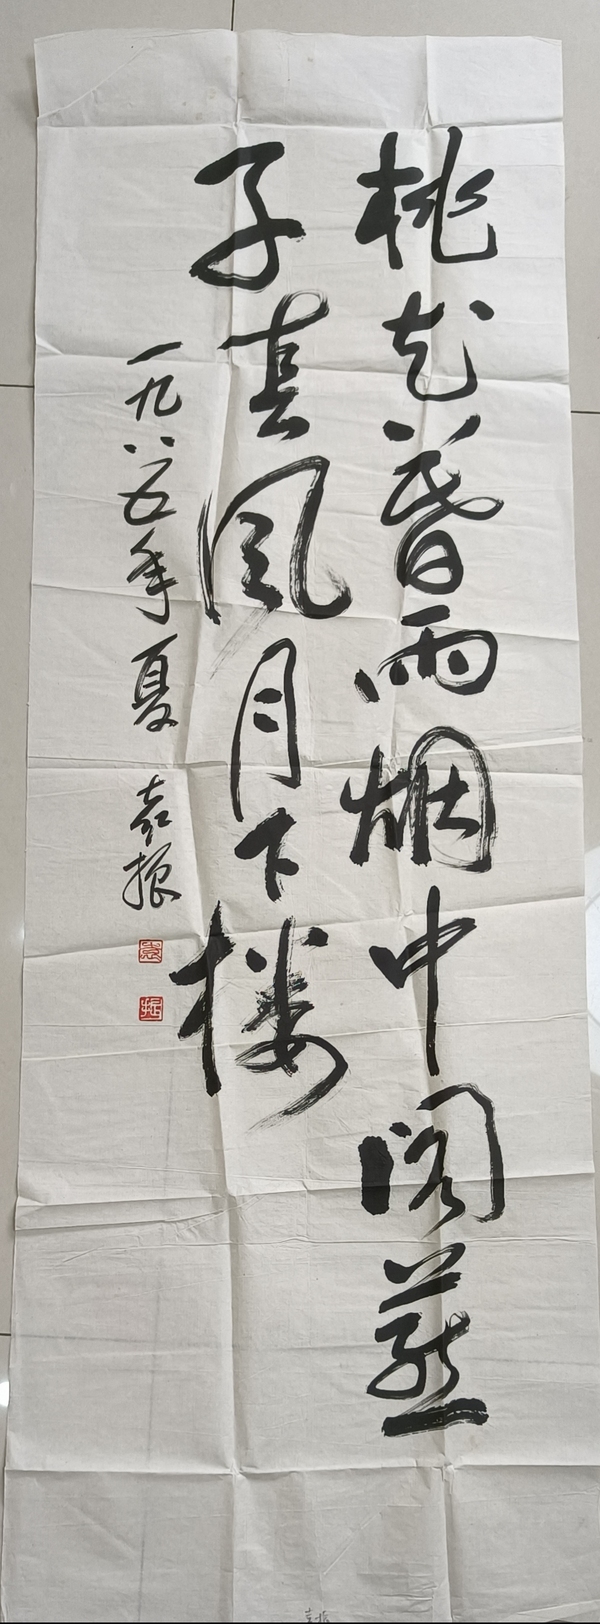 桃花暮雨烟中阁燕
子春风月下楼
一九八五年夏 袁振
袁
振
袁振